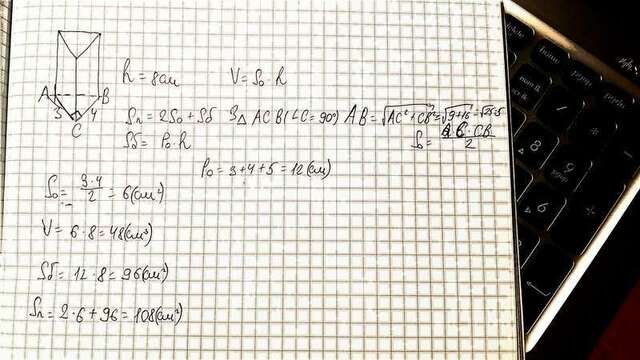 h = 8см V = So · h
A B
3 4
C
Sп = 2So + Sб З △ ACB (∠C = 90°) AB = √AC² + CB² = √9+16 = √25=5
Sб = Po · h So = AC · CB / 2
Po = 3 + 4 + 5 = 12 (см)
So = 3·4 / 2 = 6 (см²)
V = 6 · 8 = 48 (см³)
Sб = 12 · 8 = 96 (см²)
Sп = 2 · 6 + 96 = 108 (см²)